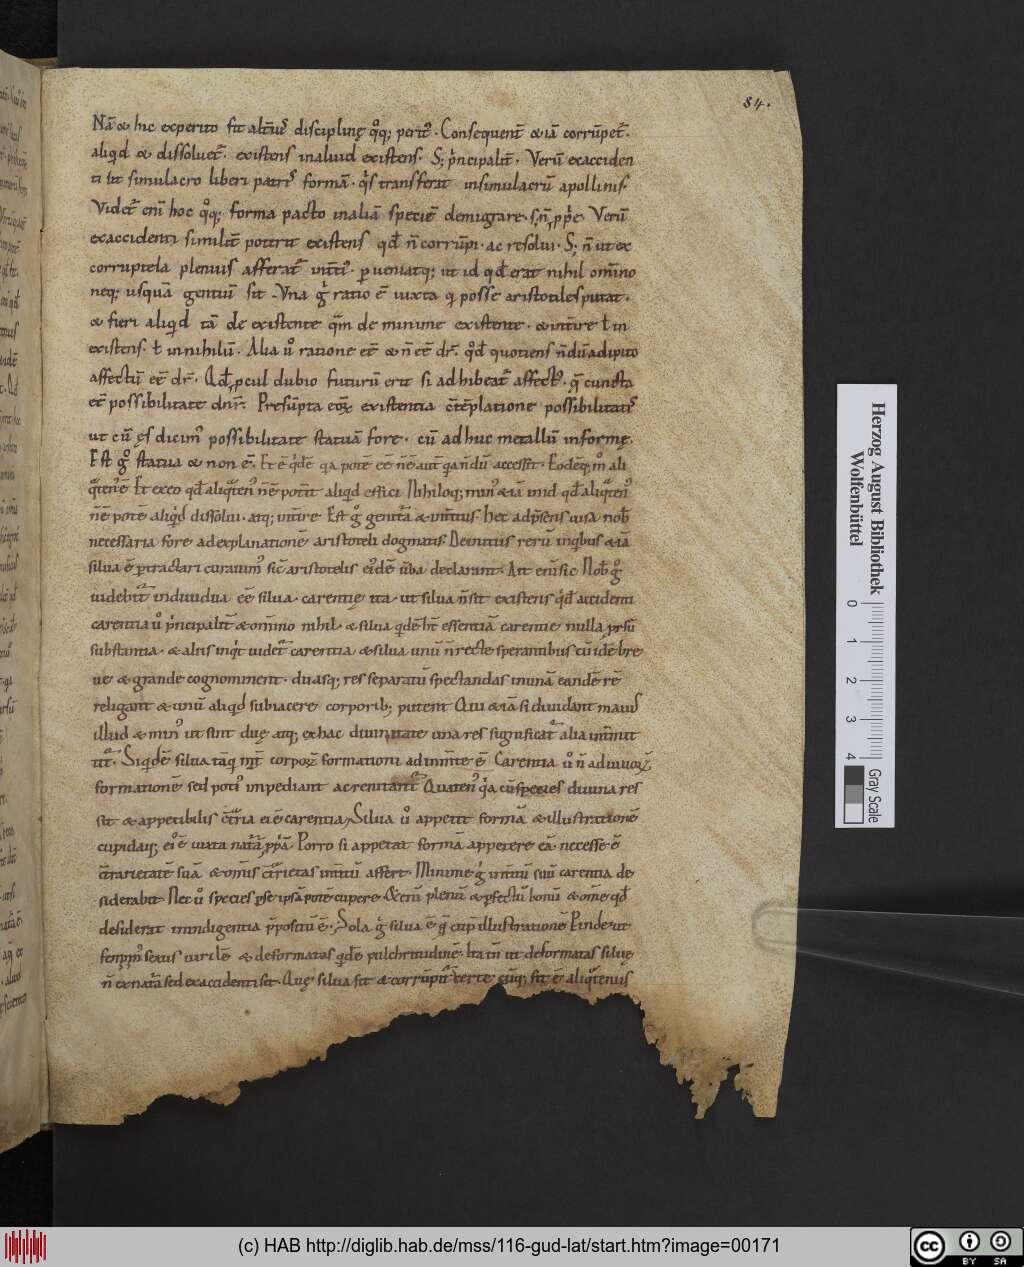 84.
Nā & hic experito fit alt̄ius discipline q̊q; perit᷒. Consequent̄ & iā corrūpet᷑.
aliqid & dissoluet᷑. existens inaliud existens. S; p̄ncipalit̄. Verū exacciden
ti sit simulacro liberi patris formā. transferat insimulacrū apollinis.
Videt᷑ eni hoc q̊q; forma pacto inaliā speciē demigrare. Verū
exaccidenti similit̄ poterit existens qđ n̄ corrūpi. ac resolui. S; n̄ ut ex
corruptela plenius afferat᷑ int̄it᷒. p ueniatq; ut id qđ erat nihil om̄ino
neq; usquā gentiū sit. Vna ratio ē iuxta q posse aristotiles putat.
& fieri aliqid tā de existente q̄m de minime existente. & int̄ire ł in
existens. ł in nihilū. Alia u̇ ratione eē & n̄ eē dr̄. qđ quotiens n̄dū adipito
affectū eē dr̄. Qđ pcul dubio futurū erit si adhibeat᷑ affect᷒. cuncta
eē possibilitate dn̄r. Presūpta existentia c̄tēplatione possibilitatis
ut cū ęs dicim᷒ possibilitate statuā fore. cū adhuc metallū informę.
Est g̊ statua & non ē. Et ē qa potē eē n̄ē aut̄ qa n̄dū accessit. Eodēq; m̊ ali
Et exeo qđ n̄ē potuit aliqd effici Nihiloq; min᷒ & iā inid qđ
n̄ē potē aliqid dissolui. atq; int̄ire Est g̊ genita & int̄itus. Hec adp̄sens uisa nob̄
necessaria fore adexplanationē aristoteli dogmatis. Deinitiis rerū inqibus & iā
silua ē p tractari curauim᷒ sic aristotelis ei᷒dē ūba declarant. Ait eni sic Nob̄ g̊
uidebit᷑ indiuidua eē silua. carentię ita ut silua n̄ sit existens qđ accidenti
carentia u̇ p̄ncipalit̄ & omino nihil. & silua qdē essentiā carentie nulla prsū
substantia. & aliis inqit uidet᷑ carentia & silua unū n̄ recte sperantibus cū idē bre
ue & grande cognominent. duasq; res separatū spectandas inunā eandē rē
religant & unū aliqd subiacere corporib; putent Qui & iā si diuidant maius
illud & min᷒ ut sint duę atq; exhac diuinitate una res significat᷑ alia inmit
tit᷑. Siqdē silua corpor formationi adinnite ē Carentia u̇ n̄ adiuuor
formationē sed poti᷒ impediant acrenitant᷑ Quaten᷒ qia cū species diuina res
sit & appetibilis ei ē carentia, Silua u̇ appetit formā & illustrationē
cupidaq; ei᷒ ē iuxta Porro si appetat formā appetere eā necesse ē
c̄trarietatē suā & om̄is c̄trietas int̄itū affert. Minime g̊ int̄itū suū carentia de
siderabit Nec u̇ species pse ipsā potē cupere. &enī plenū & pfectū bonū & om̄e qđ
desiderat inindigentia p̄positū ē. Sola silua ē q̄ cupit illustrationē Pinde ut
femineus sexus uirilē & deformatas qdē pulchritudinē. Ita tn̄ ut deformatas siluę
n̄ exnatā sed exaccidenti sit. Quę silua sit & corrūpit᷑ certe eiq; sit ē aliq̄tenus
Herzog August Bibliothek
Wolfenbüttel
0 1 2 3 4
Gray Scale
(c) HAB http://diglib.hab.de/mss/116-gud-lat/start.htm?image=00171
cc BY SA